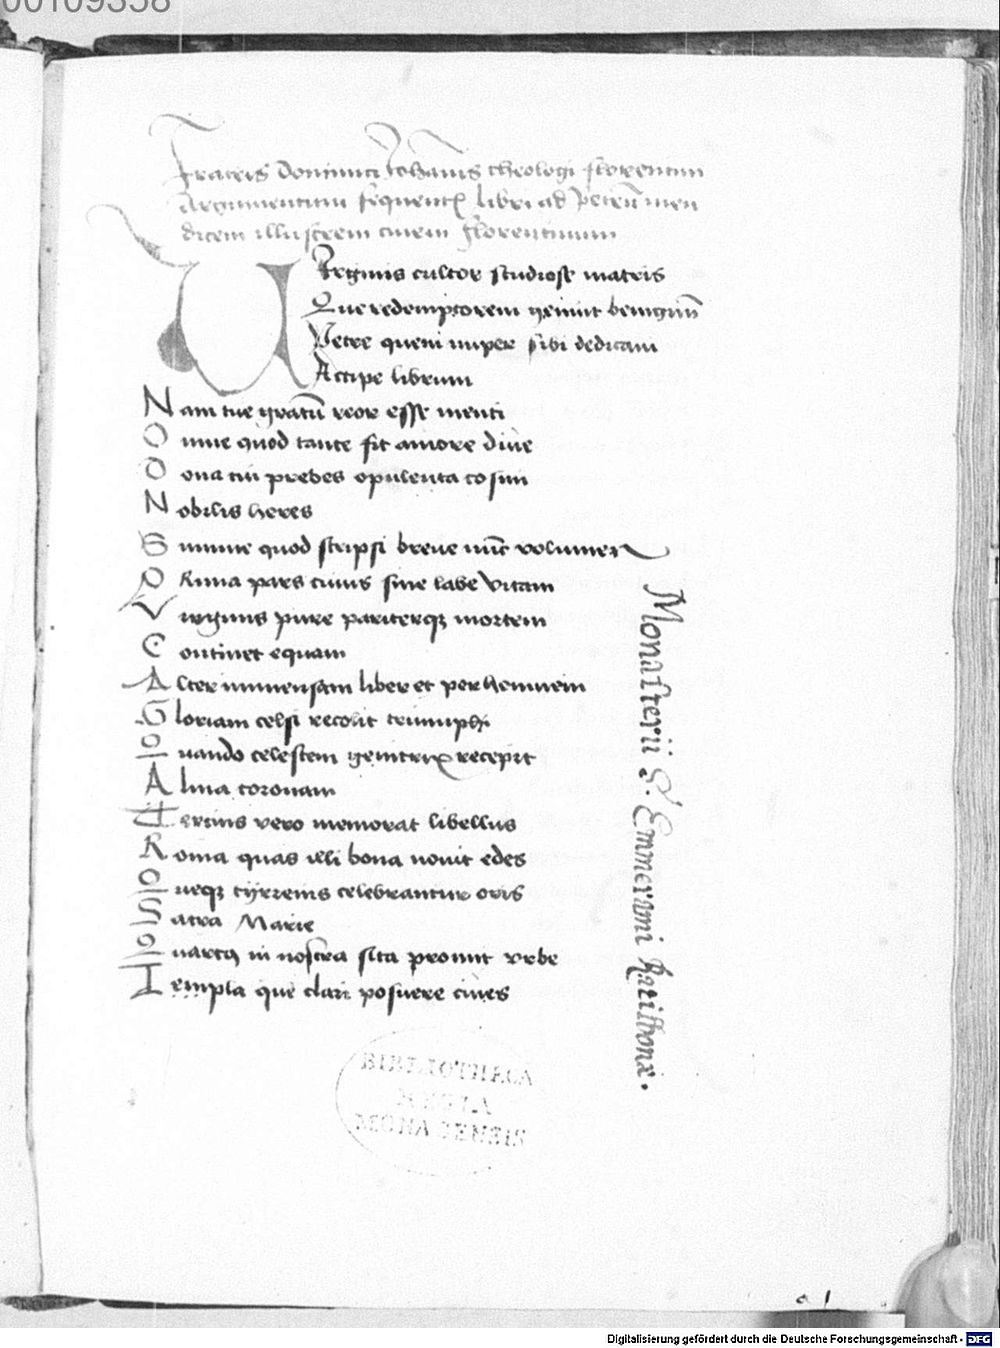 00109358
Fratris Dominici Iohānis theologi florentini
Argumentum sequentis libri ad Petrū men
dicem illustrem ciuem florentinum
VIrginis cultor studiose matris
Que redemptorem genuit benignū
Petre quem nuper sibi dedicam
Accipe librum
Nam tue gratū reor esse menti
Omne quod tante fit amore diue
Dona tui prebes opulenta cosmi
Nobilis heres
Summe quod scripsi breue nūc volumen
Prima pars cuius sine labe vitam
Virginis pure pariterqȝ mortem
Continet equam
Alter immensam liber et perhennem
Gloriam celsi recolit triumphi
Quando celestem genitrix recepit
Alma coronam
Tertius vero memorat libellus
Roma quas illi bona nouit edes
Queqȝ tÿrrenis celebrantur oris
Sacra Marie
Quartꝰ in nostra sita promit vrbe
Templa que clari posuere ciues
Monasterii S. Emmerami Ratisbonæ.
a 1
Digitalisierung gefördert durch die Deutsche Forschungsgemeinschaft - DFG